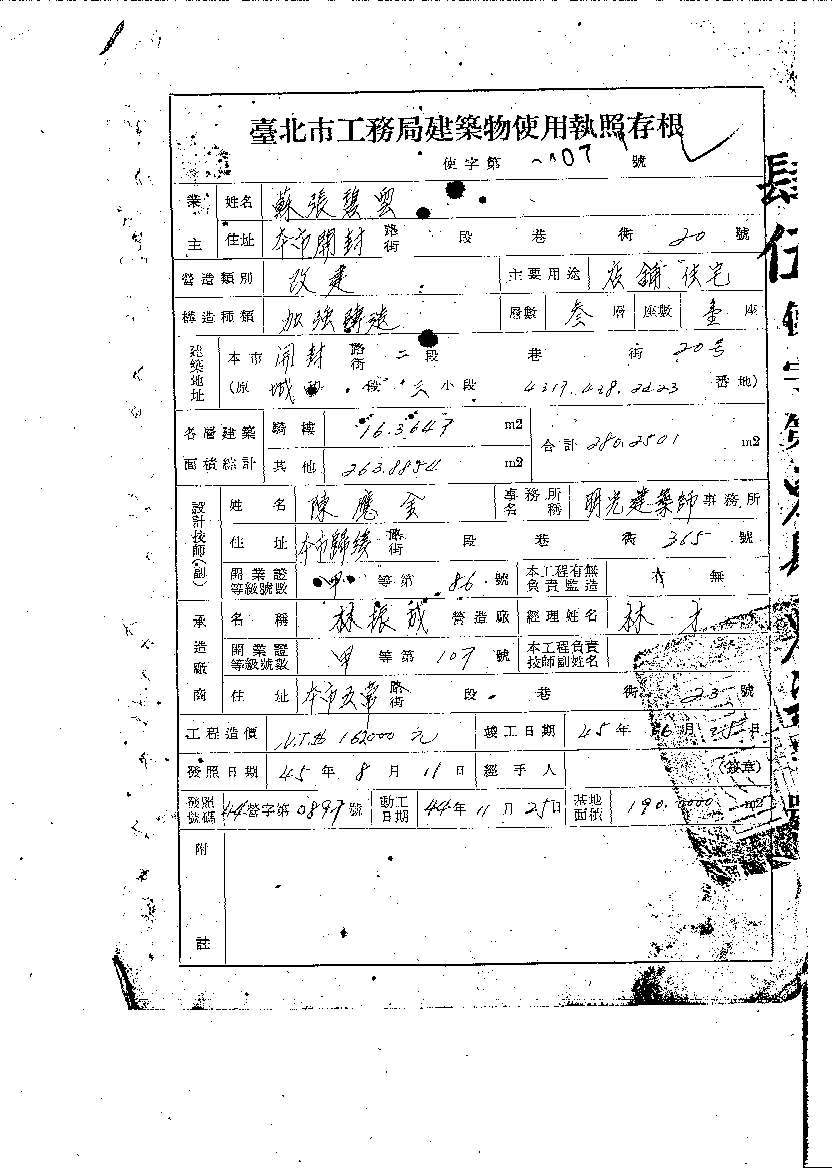 臺北市工務局建築物使用執照存根
使字第 07 號
業主 姓名 蘇張碧雲
住址 本市開封 路街 段 巷 街 20 號
營造類別 改建 主要用途 店舖住宅
構造種類 加強磚造 層數 叁 層 座數 壹 座
建築地址 本市 開封 路街 二段 巷 街 20号
(原 城 段 三 小段 番地)
各層建築面積綜計 騎樓 16.3647 m2 合計 280.2501 m2
其他 263.8854 m2
設計技師(副) 姓名 陳應金 事務所名稱 明光建築師事務所
住址 本市歸綏 路街 段 巷 街 365 號
開業證等級號數 甲 等第 86 號 本工程有無負責監造 有 無
承造廠商 名稱 林振成 營造廠 經理姓名 林
開業證等級號數 甲 等第 107 號 本工程負責技師副姓名
住址 本市五常 路街 段 巷 街 23 號
工程造價 N.T.$ 162000 元 竣工日期 45 年 6 月 25 日
發照日期 45 年 8 月 11 日 經手人 (簽章)
發照號碼 44 營字第 0897 號 動工日期 44 年 11 月 25 日 基地面積 190.0000 m2
附註
肆伍